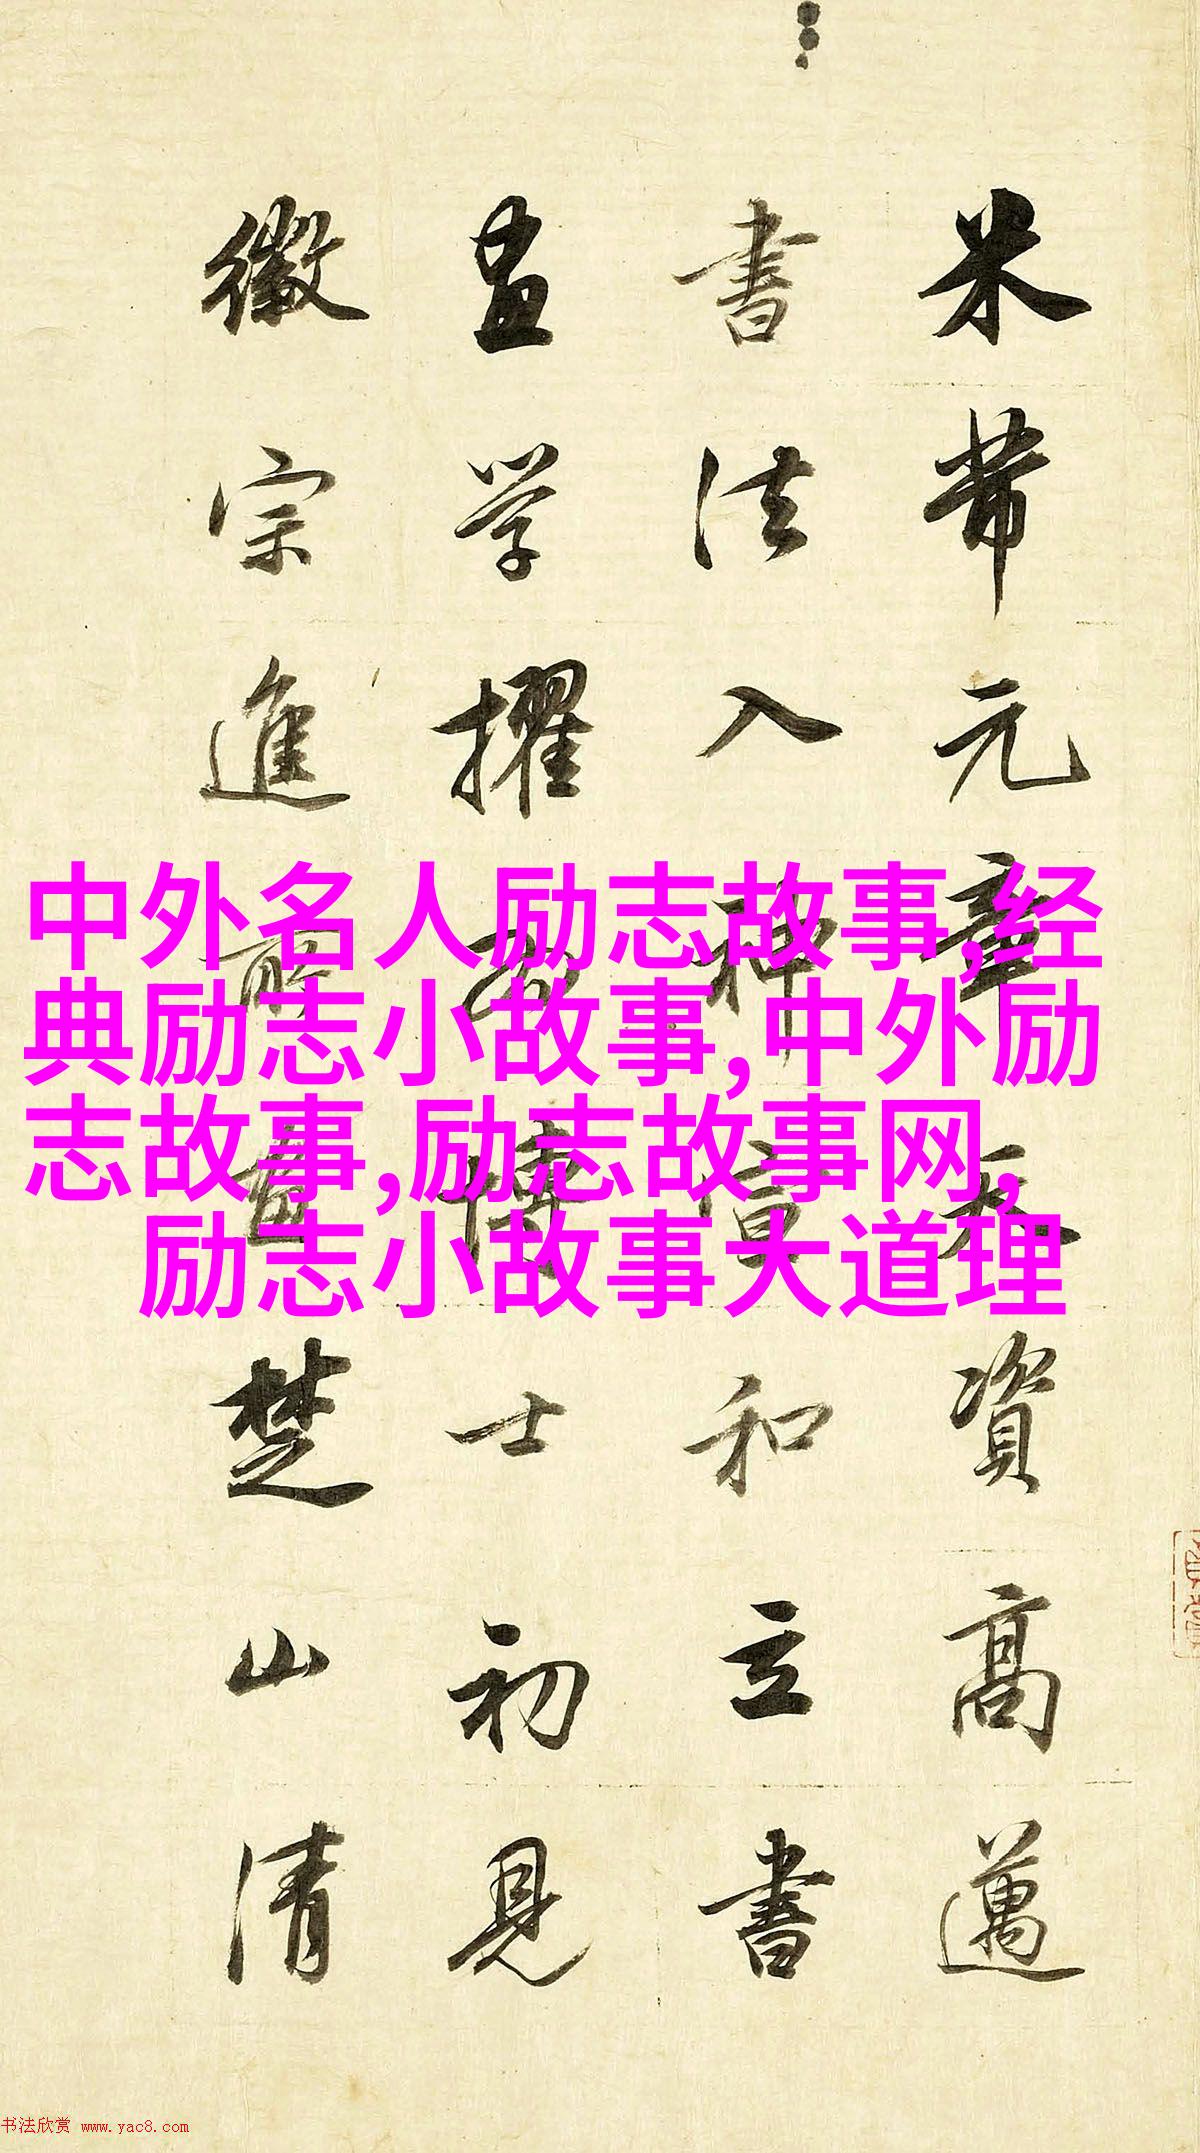 米芾元章天資高邁
書法入神宣和立書
畫学擢為博士初見
徽宗進所畫楚山清
中外名人励志故事,经
典励志小故事,中外励
志故事,励志故事网,
励志小故事大道理
书法欣赏 www.yac8.com